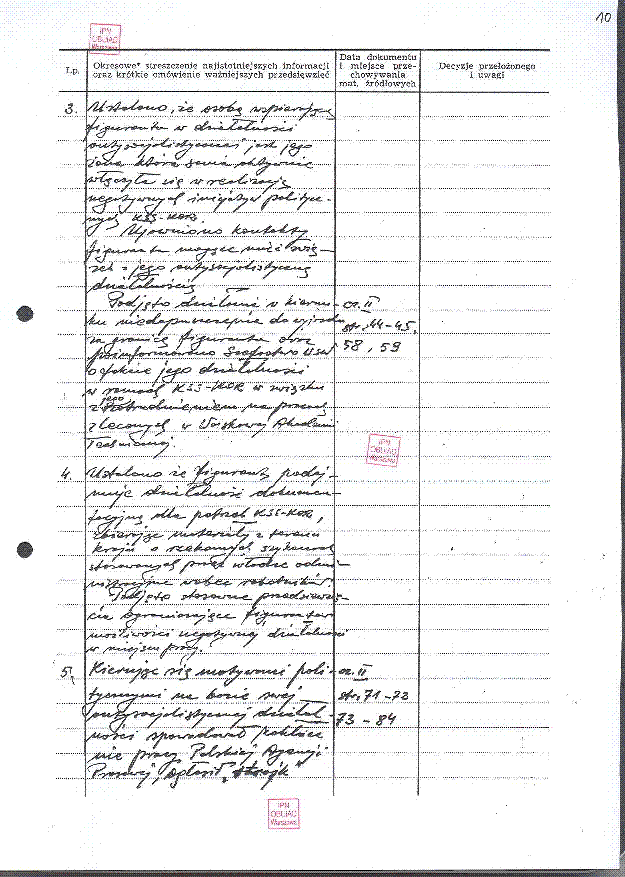 10
IPN
OBUiAD
Warszawa
Lp.
Okresowe* streszczenie najistotniejszych informacji
oraz krótkie omówienie ważniejszych przedsięwzięć
Data dokumentu
i miejsce prze-
chowywania
mat. źródłowych
Decyzje przełożonego
i uwagi
3. Ustalono, że osobą wspierającą
figuranta w działalności
antysocjalistycznej jest jego
żona która sama aktywnie
włączyła się w realizację
negatywnych inicjatyw polity-
nych KSS-KOR.
Ujawniono kontakty
figuranta mogące mieć zwią-
zek z jego antysocjalistyczną
działalnością
Podjęto działania w kierun-
cz. II
ku niedopuszczenia do wyjazdu
str. 44-45,
za granicę figuranta oraz
58, 59
poinformowano Szefostwo WSW
o fakcie jego działalności
w ramach KSS-KOR w związku
z jego zatrudnieniem na pracach
zleconych w Wojskowej Akademii
Technicznej.
IPN
OBUiAD
Warszawa
4. Ustalono że figurant podej-
muje działalność dokumen-
tacyjną dla potrzeb KSS-KOR,
zbierając materiały z terenu
kraju o rzekomych szykanach
stosowanych przez władze admi-
nistracyjne wobec robotników.
Podjęto stosowne przedsięwzię-
cia ograniczające figurantowi
możliwości negatywnej działalności
w miejscu pracy.
5. Kierując się motywami poli-
cz. II
tycznymi na bazie swej
str. 71-72
antysocjalistycznej działal-
73-84
ności spowodował zakłóce-
nie pracy Polskiej Agencji
Prasowej, ogłosił "strajk"
IPN
OBUiAD
Warszawa